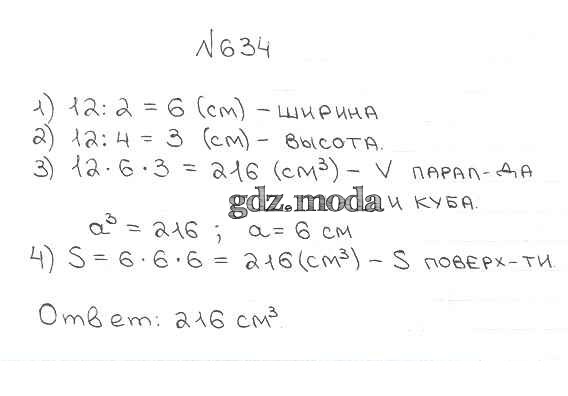 №634
1) 12:2 = 6 (см) – ШИРИНА
2) 12:4 = 3 (см) – ВЫСОТА.
3) 12·6·3 = 216 (см³) – V ПАРАЛ-ДА
gdz.moda И КУБА.
a³ = 216 ; a = 6 см
4) S = 6·6·6 = 216 (см³) – S ПОВЕРХ-ТИ.
Ответ: 216 см³.